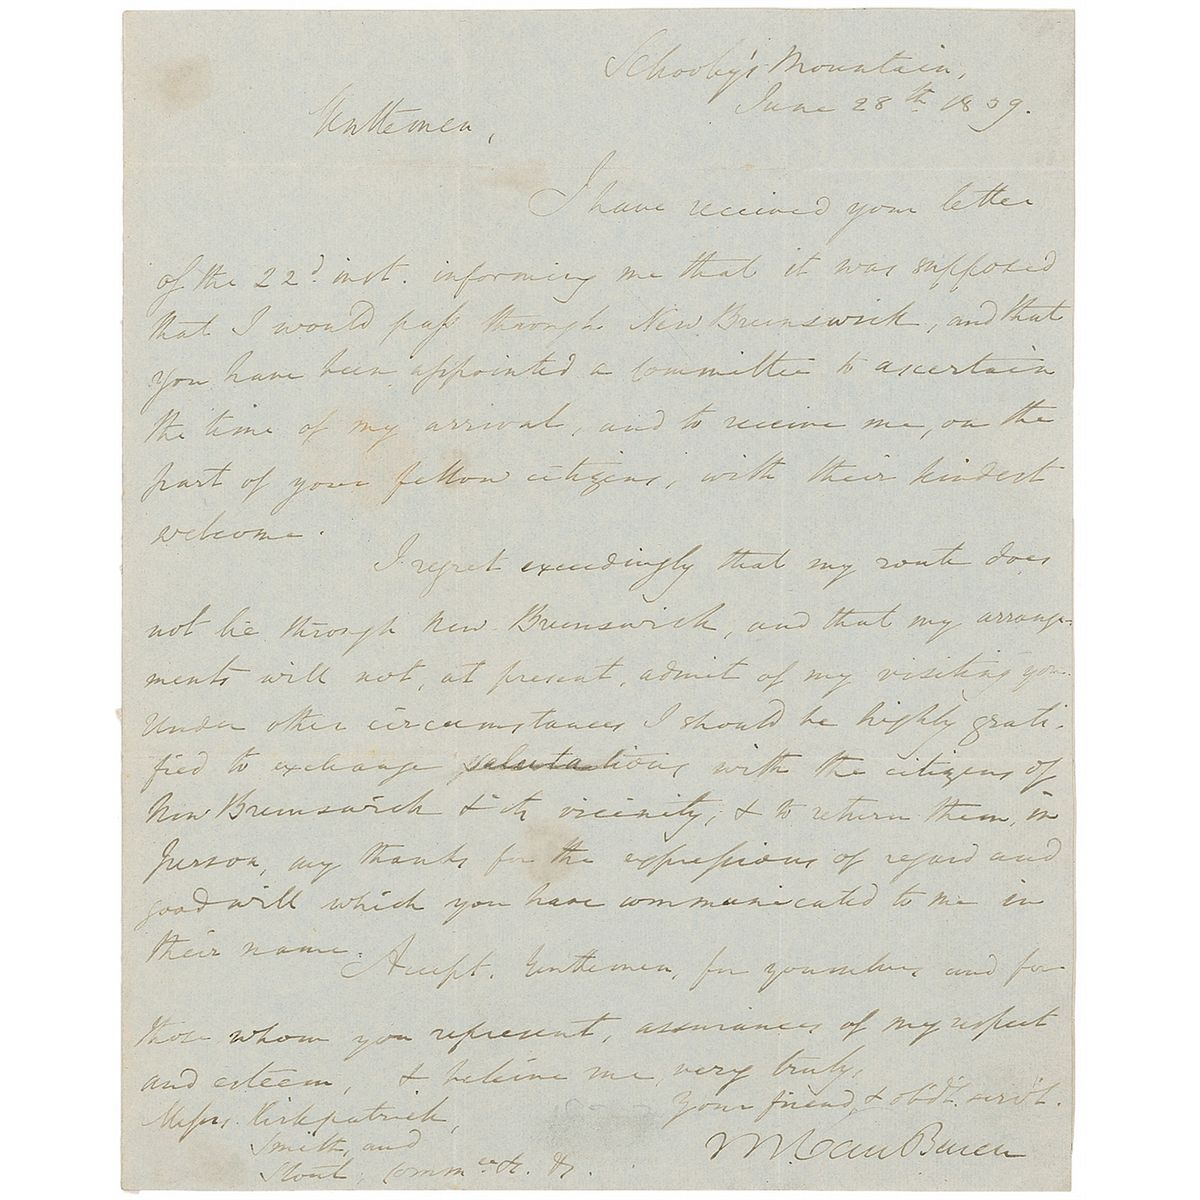 Schooley's Mountain,
June 28th 1839.
Gentlemen,
I have received your letter
of the 22d inst. informing me that it was supposed
that I would pass through New Brunswick, and that
you have been appointed a committee to ascertain
the time of my arrival, and to receive me, on the
part of your fellow citizens, with their kindest
welcome.
I regret exceedingly that my route does
not lie through New Brunswick, and that my arrange-
ments will not, at present, admit of my visiting you.
Under other circumstances I should be highly grati-
fied to exchange salutations with the citizens of
New Brunswick & its vicinity, & to return them, in
person, my thanks for the expressions of regard and
good will which you have communicated to me in
their name.
Accept, Gentlemen, for yourselves and for
those whom you represent, assurances of my respect
and esteem, & believe me very truly,
Your friend & obdt. servt.
M Van Buren
Messrs. Kirkpatrick,
Smith, and
Stout, Commee &c. &c.